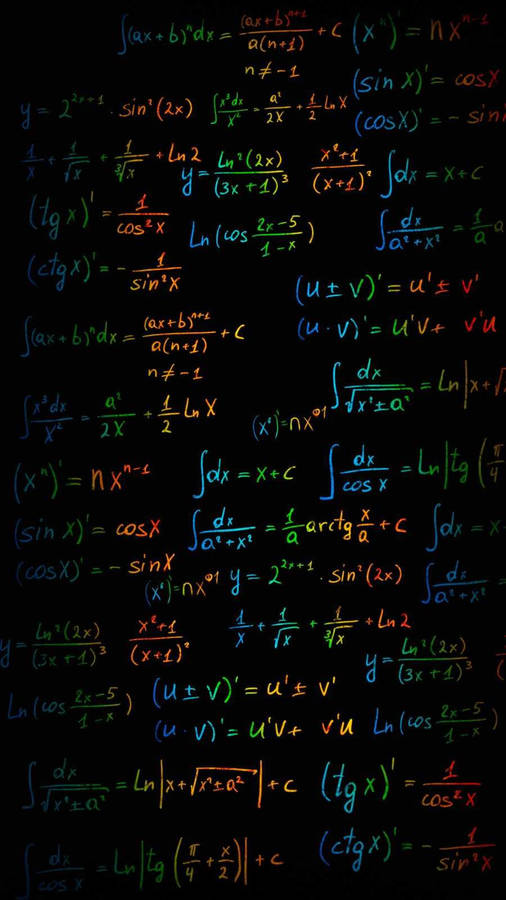 ∫(ax+b)ⁿdx = (ax+b)ⁿ⁺¹/a(n+1) + C
n ≠ -1
(xⁿ)' = nxⁿ⁻¹
(sin x)' = cosx
(cosx)' = - sin
y = 2²ˣ⁺¹ · sin²(2x)
∫x³dx/x² = a²/2x + 1/2 Ln x
1/x + 1/√x + 1/∛x + Ln 2
y = Ln²(2x)/(3x+1)³
x²+1/(x+1)²
∫dx = x+c
(tg x)' = 1/cos²x
Ln(cos 2x-5/1-x)
∫dx/a²+x² = 1/a a
(ctg x)' = - 1/sin²x
(u ± v)' = u' ± v'
(u · v)' = u'v + v'u
∫(ax+b)ⁿdx = (ax+b)ⁿ⁺¹/a(n+1) + C
n ≠ -1
∫dx/√x²±a² = Ln|x+√
∫x³dx/x² = a²/2x + 1/2 Ln x
∫dx = x+c
∫dx/cos x = Ln|tg(π/4
(xⁿ)' = nxⁿ⁻¹
(sin x)' = cosx
∫dx/a²+x² = 1/a arctg x/a + c
∫dx = x
(cosx)' = - sinx
y = 2²ˣ⁺¹ · sin²(2x)
∫dx/a²+x² =
1/x + 1/√x + 1/∛x + Ln 2
y = Ln²(2x)/(3x+1)³
x²+1/(x+1)²
y = Ln²(2x)/(3x+1)³
Ln(cos 2x-5/1-x)
(u ± v)' = u' ± v'
(u · v)' = u'v + v'u
Ln(cos 2x-5/1-x)
∫dx/√x²±a² = Ln|x+√x²±a²| + c
(tg x)' = 1/cos²x
∫dx/cos x = Ln|tg(π/4 + x/2)| + c
(ctg x)' = - 1/sin²x